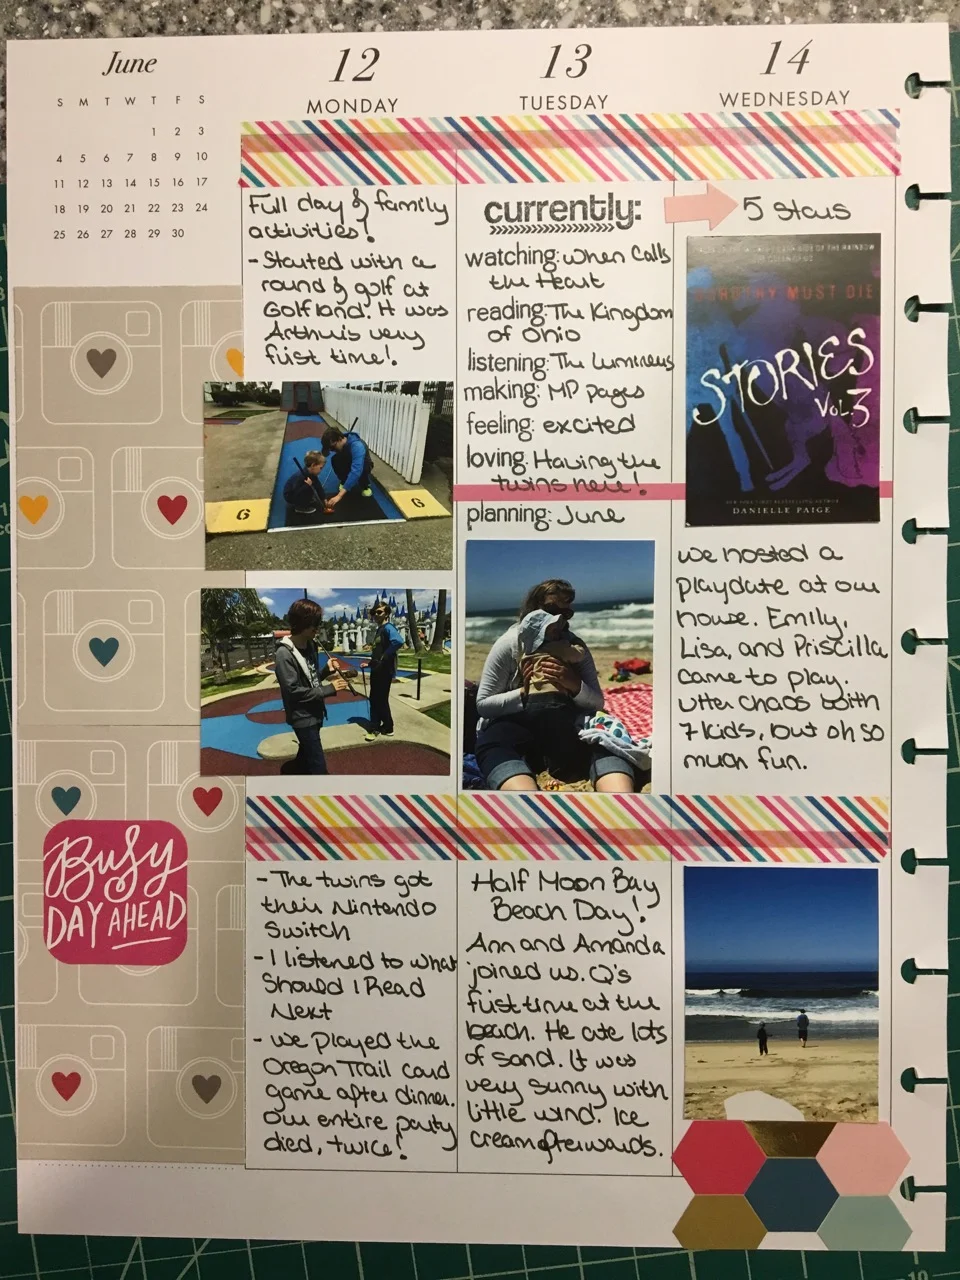 June
S M T W T F S
1 2 3
4 5 6 7 8 9 10
11 12 13 14 15 16 17
18 19 20 21 22 23 24
25 26 27 28 29 30
12
MONDAY
Full day of family
activities!
- Started with a
round of golf at
Golfland. It was
Arthur's very
first time!
G G
- The twins got
their Nintendo
Switch
- I listened to What
Should I Read
Next
- we played the
Oregon Trail card
game after dinner.
Our entire party
died, twice!
13
TUESDAY
currently:
watching: When Calls
the Heart
reading: The Kingdom
of Ohio
listening: The Luminous
making: MP pages
feeling: excited
loving: Having the
twins here!
planning: June
Half Moon Bay
Beach Day!
Ann and Amanda
joined us. Q's
first time at the
beach. He ate lots
of sand. It was
very sunny with
little wind. Ice
cream afterwards.
14
WEDNESDAY
5 stars
DOROTHY MUST DIE
STORIES
VOL.3
NEW YORK TIMES BESTSELLING AUTHOR
DANIELLE PAIGE
we hosted a
playdate at our
house. Emily,
Lisa, and Priscilla
came to play.
Utter chaos with
7 kids, but oh so
much fun.
Busy
DAY AHEAD